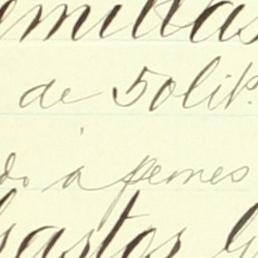 emillas
de 50 lit.
do à femes
astos G